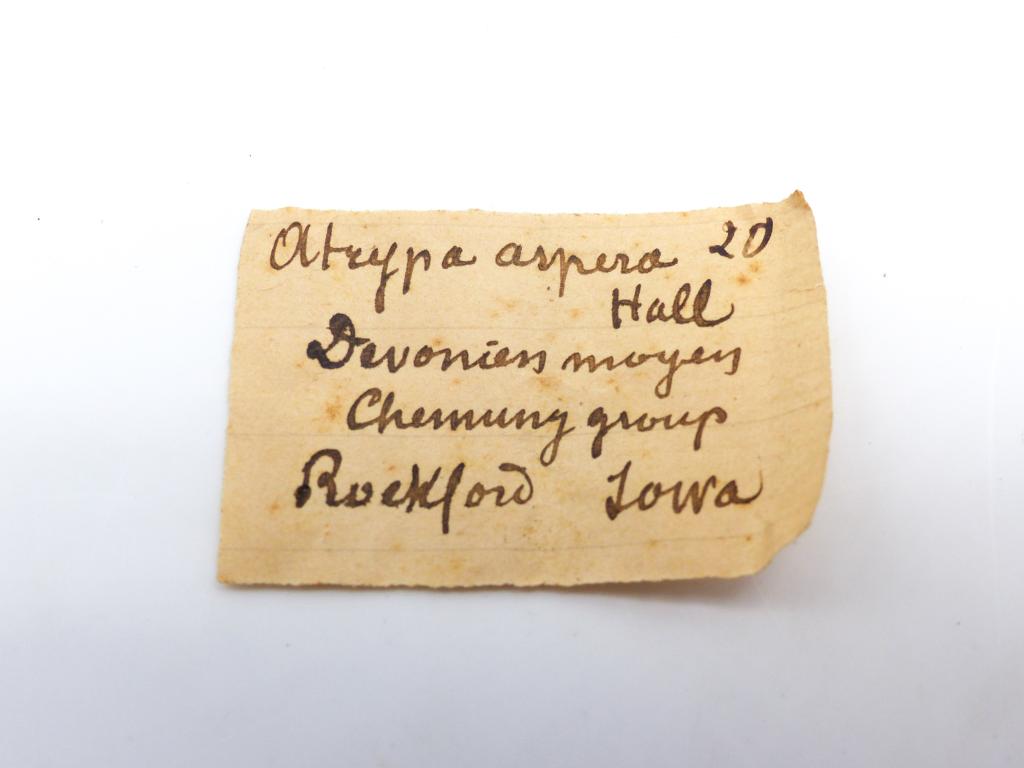 Atrypa aspera 20
Hall
Devonien moyen
Chemung group
Rockford Iowa